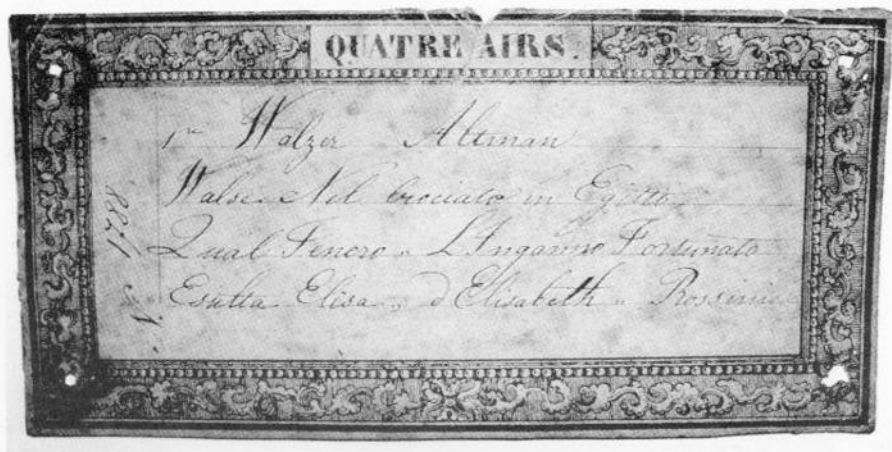 QUATRE AIRS.
1er Walzer Altman
Walse. Nel Crociato in Egitto.
Qual Tenero " L'Inganno Fortunato
Esulta Elisa " d'Elisabeth " Rossini
№ 1788